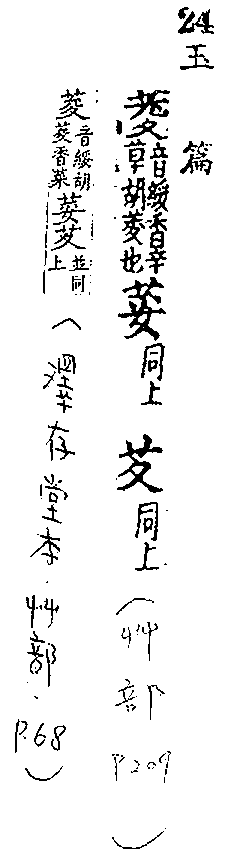 24 玉篇
荾音綏香辛草胡荾也荽同上 芕同上(艸部 P209)
荾音綏胡荾香菜荽芕並同上(澤存堂本.艸部.P.68)